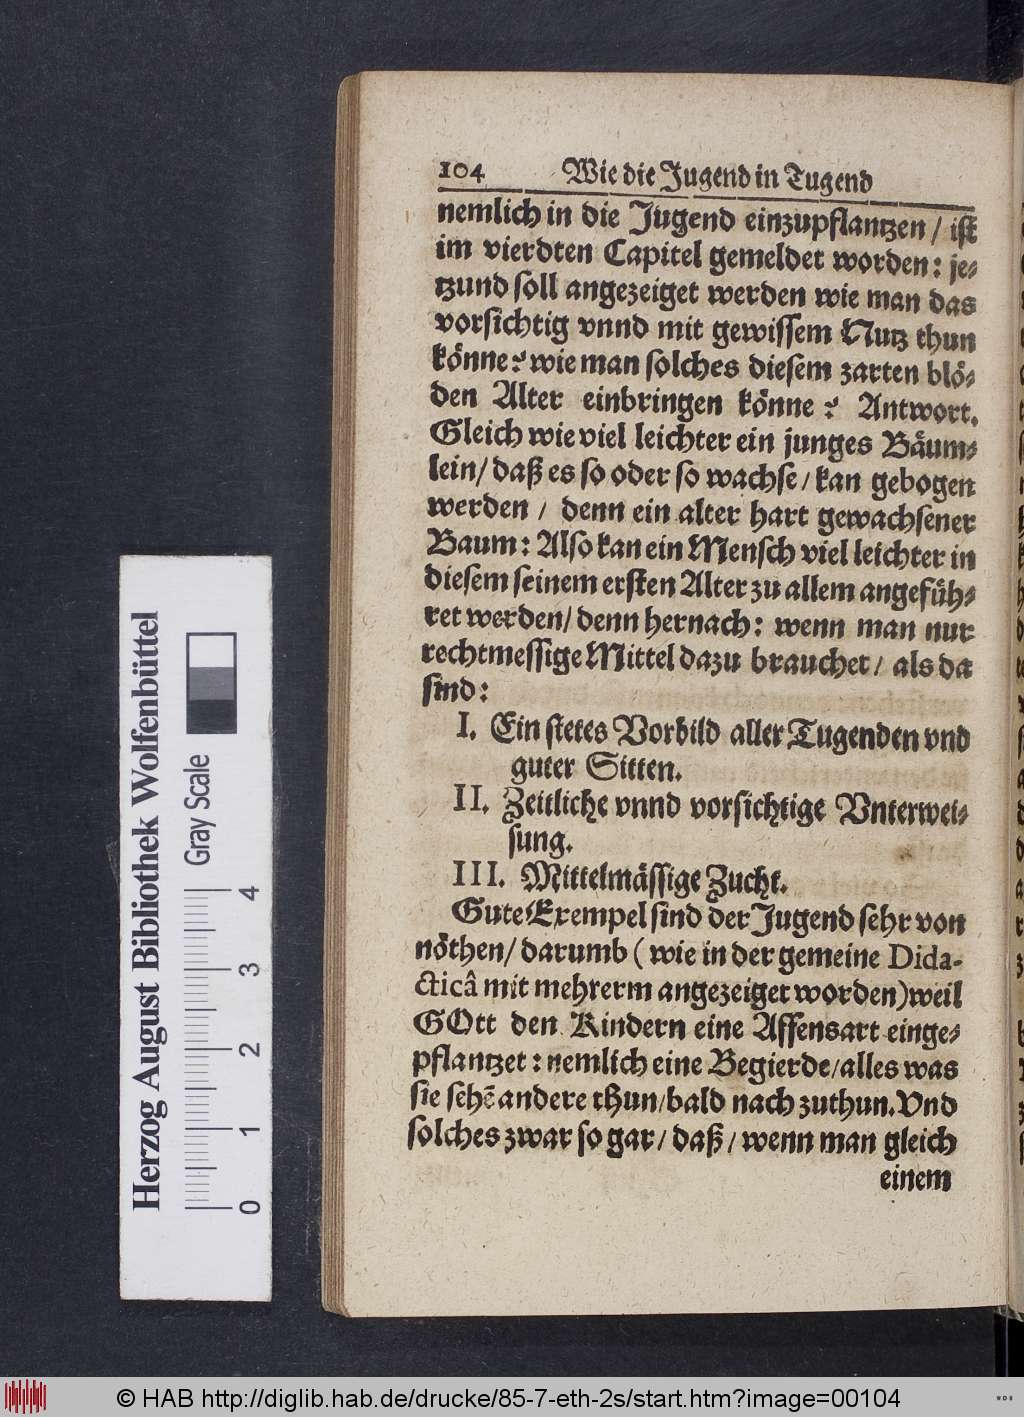 104 Wie die Jugend in Tugend
nemlich in die Jugend einzupflantzen / ist
im vierdten Capitel gemeldet worden: je-
tzund soll angezeiget werden wie man das
vorsichtig vnnd mit gewissem Nutz thun
könne? wie man solches diesem zarten blö-
den Alter einbringen könne? Antwort.
Gleich wie viel leichter ein junges Bäum-
lein/ daß es so oder so wachse/ kan gebogen
werden / denn ein alter hart gewachsener
Baum: Also kan ein Mensch viel leichter in
diesem seinem ersten Alter zu allem angefüh-
ret werden/ denn hernach: wenn man nur
rechtmessige Mittel dazu brauchet/ als da
sind:
I. Ein stetes Vorbild aller Tugenden vnd
guter Sitten.
II. Zeitliche vnnd vorsichtige Vnterwei-
sung.
III. Mittelmässige Zucht.
Gute Exempel sind der Jugend sehr von
nöthen/ darumb ( wie in der gemeine Dida-
cticâ mit mehrerm angezeiget worden) weil
GOtt den Kindern eine Affensart einge-
pflantzet: nemlich eine Begierde/ alles was
sie sehẽ andere thun/ bald nach zuthun. Vnd
solches zwar so gar/ daß/ wenn man gleich
einem
Herzog August Bibliothek Wolfenbüttel
Gray Scale
0 1 2 3 4
© HAB http://diglib.hab.de/drucke/85-7-eth-2s/start.htm?image=00104